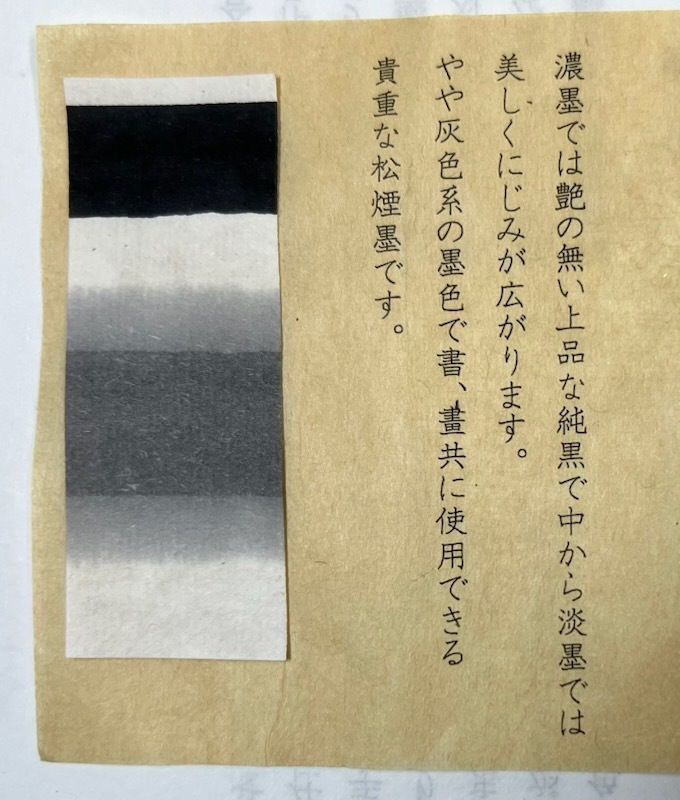 濃墨では艶の無い上品な純黒で中から淡墨では
美しくにじみが広がります。
やや灰色系の墨色で書、畫共に使用できる
貴重な松煙墨です。